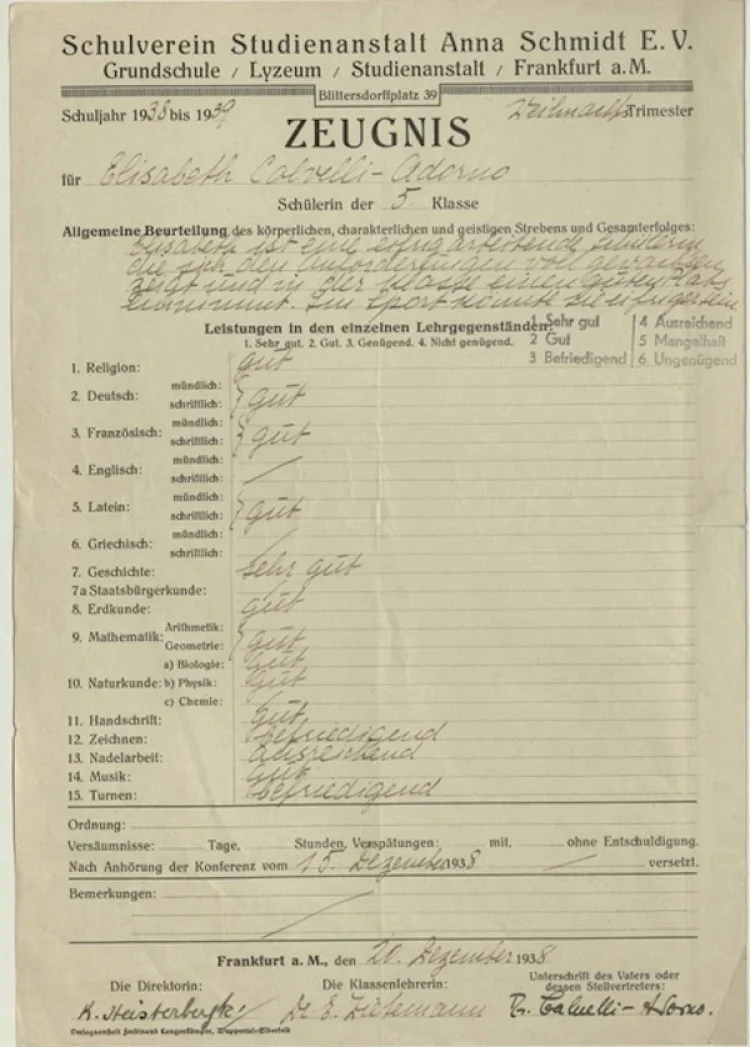 Schulverein Studienanstalt Anna Schmidt E. V.
Grundschule / Lyzeum / Studienanstalt / Frankfurt a. M.
Blittersdorffplatz 39
Schuljahr 1938 bis 1939 Weihnachts Trimester
ZEUGNIS
für Elisabeth Calvelli-Adorno
Schülerin der 5. Klasse
Allgemeine Beurteilung des körperlichen, charakterlichen und geistigen Strebens und Gesamterfolges:
Elisabeth ist eine eifrig arbeitende Schülerin,
die sich den Anforderungen voll gewachsen
zeigt und in der Klasse einen guten Platz
einnimmt. Im Sport könnte sie eifriger sein.
Leistungen in den einzelnen Lehrgegenständen:
1. Sehr gut. 2. Gut. 3. Genügend. 4. Nicht genügend.
1 Sehr gut 4 Ausreichend
2 Gut 5 Mangelhaft
3 Befriedigend 6 Ungenügend
1. Religion: gut
2. Deutsch: mündlich: schriftlich: } gut
3. Französisch: mündlich: schriftlich: } gut
4. Englisch: mündlich: schriftlich: /
5. Latein: mündlich: schriftlich: } gut
6. Griechisch: mündlich: schriftlich: /
7. Geschichte: sehr gut
7a Staatsbürgerkunde: /
8. Erdkunde: gut
9. Mathematik: Arithmetik: Geometrie: } gut
a) Biologie: gut
10. Naturkunde: b) Physik: gut
c) Chemie: /
11. Handschrift: gut
12. Zeichnen: befriedigend
13. Nadelarbeit: ausreichend
14. Musik: gut
15. Turnen: befriedigend
Ordnung:
Versäumnisse: Tage, Stunden, Verspätungen: mit, ohne Entschuldigung.
Nach Anhörung der Konferenz vom 15. Dezember 1938 — versetzt.
Bemerkungen: /
Frankfurt a. M., den 20. Dezember 1938
Die Direktorin: Die Klassenlehrerin: Unterschrift des Vaters oder
dessen Stellvertreters:
K. Heisterbergk Dr. E. Dr. Calvelli-Adorno.
Verlagsanstalt Ferdinand Langenfangen, Wuppertal-Elberfeld